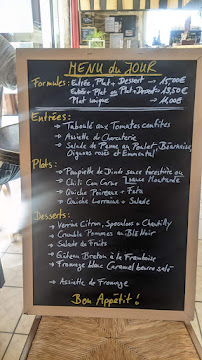 MENU du JOUR
Formules: Entrée, Plat, Dessert → 15,00€
Entrée, Plat ou Plat, Dessert → 13,50€
Plat unique → 11,00€
Entrées:
→ Taboulé aux Tomates confites
→ Assiette de Charcuterie
→ Salade de Pomme au Poulet, Béarnaise,
Oignons rosés et Emmental
Plats:
→ Paupiette de Dinde sauce forestière ou
→ Chili Con Carne Moutarde
→ Quiche Poireaux + Feta
→ Quiche Lorraine + Salade
Desserts:
→ Verrine Citron, Speculoos + Chantilly
→ Crumble Pommes au Blé Noir
→ Salade de Fruits
→ Gâteau Breton à la Framboise
→ Fromage blanc Caramel beurre salé
→ Assiette de Fromage
Bon Appétit!